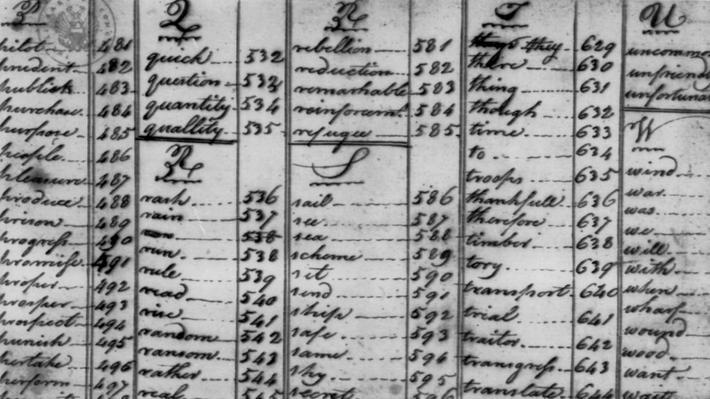 P
pilot 481
prudent 482
publick 483
purchase 484
purpose 485
people 486
pleasure 487
produce 488
prison 489
progress 490
promise 491
proper 492
prosper 493
prospect 494
punish 495
pertake 496
perform 497
Q
quick 532
question 533
quantity 534
quallity 535
R
rash 536
rain 537
538
run 538
rule 539
read 540
rise 541
random 542
ransom 543
rather 544
real 545
R
rebellion 581
reduction 582
remarkable 583
reinforcemt 584
refugee 585
S
sail 586
see 587
sea 588
scheme 589
set 590
send 591
ship 592
safe 593
same 594
sky 595
secret 596
T
they 629
there 630
thing 631
though 632
time 633
to 634
troops 635
thankfull 636
therefore 637
timber 638
tory 639
transport 640
trial 641
traitor 642
transgress 643
translate 644
U
uncommo
unfriend
unfortuna
W
wind
war
was
we
will
with
when
wharf
wound
wood
want
wait